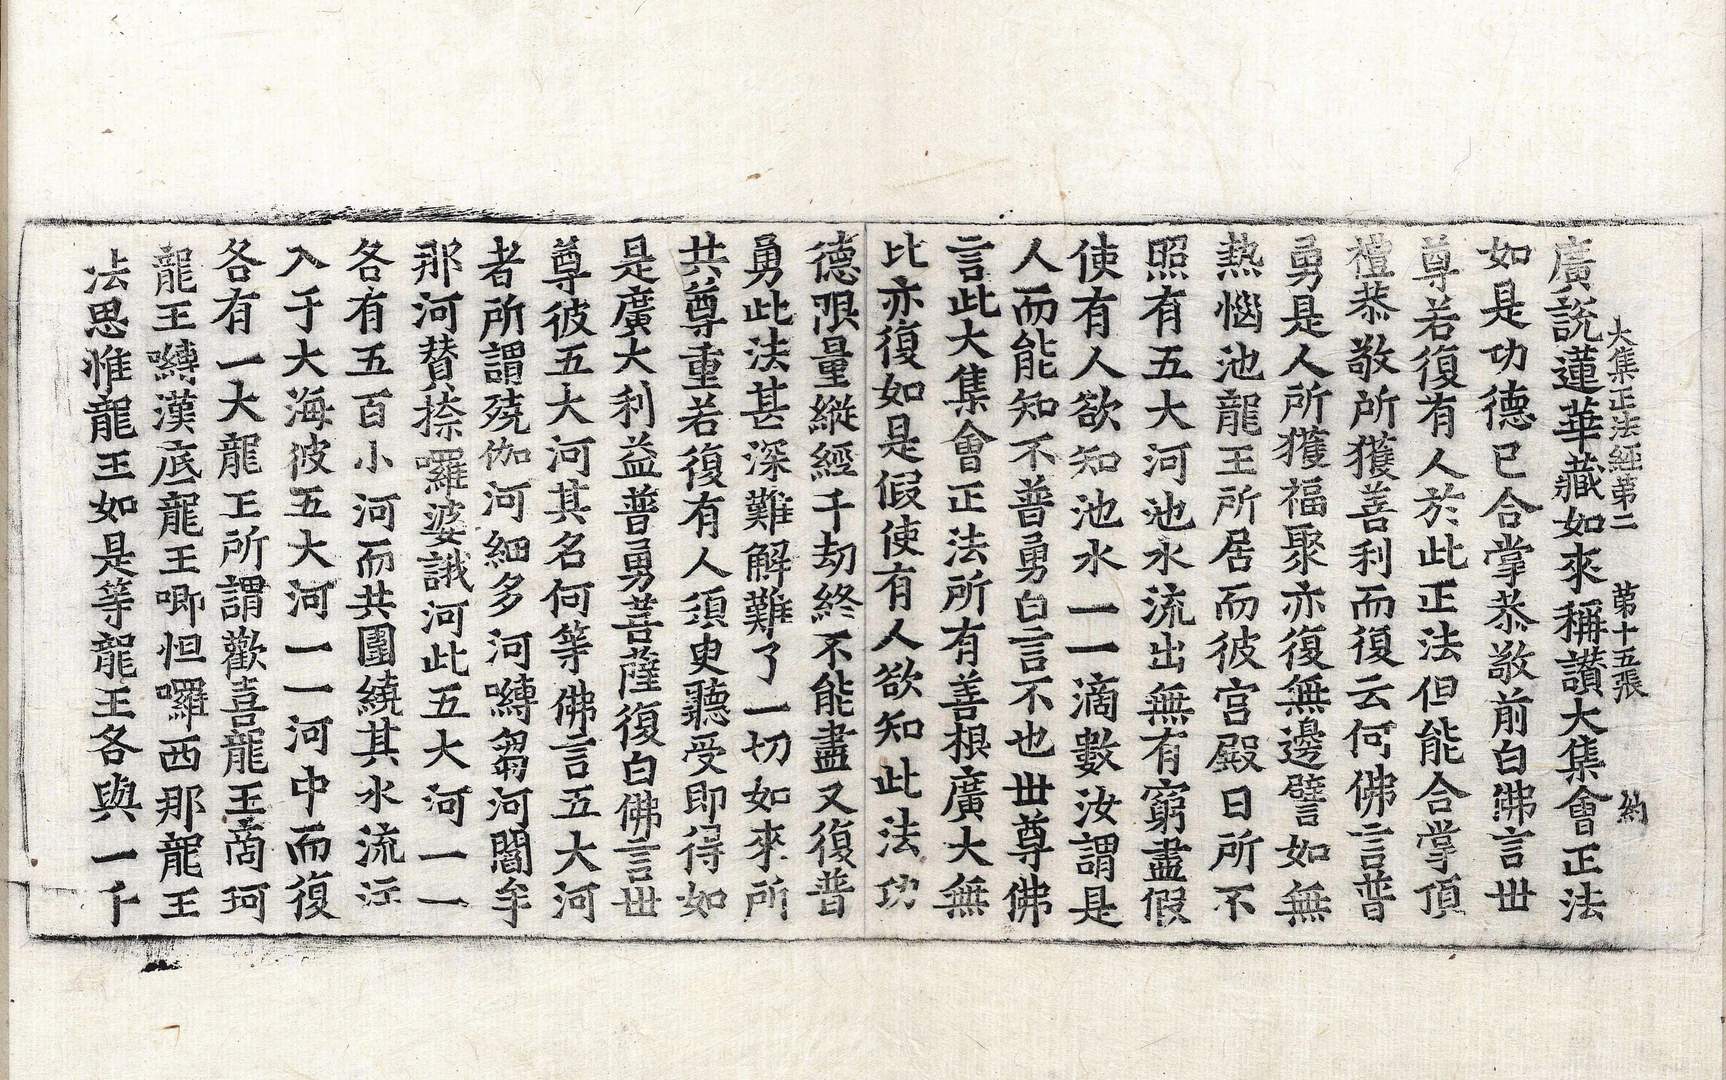 大集正法經第二 第十五張 約
廣說蓮華藏如來稱讃大集會正法
如是功德已合掌恭敬前白佛言世
尊若復有人於此正法但能合掌頂
禮恭敬所獲善利而復云何佛言普
勇是人所獲福聚亦復無邊譬如無
熱惱池龍王所居而彼宫殿日所不
照有五大河池水流出無有窮盡假
使有人欲知池水一一滴數汝謂是
人而能知不普勇白言不也世尊佛
言此大集會正法所有善根廣大無
比亦復如是假使有人欲知此法功
德限量縱經千劫終不能盡又復普
勇此法甚深難解難了一切如來所
共尊重若復有人須臾聽受即得如
是廣大利益普勇菩薩復白佛言世
尊彼五大河其名何等佛言五大河
者所謂殑伽河細多河嚩芻河閻牟
那河賛捺囉婆誐河此五大河一一
各有五百小河而共圍繞其水流泝
入于大海彼五大河一一河中而復
各有一大龍王所謂歡喜龍王啇珂
龍王嚩漢底龍王唧怛囉西那龍王
法思惟龍王如是等龍王各與一千